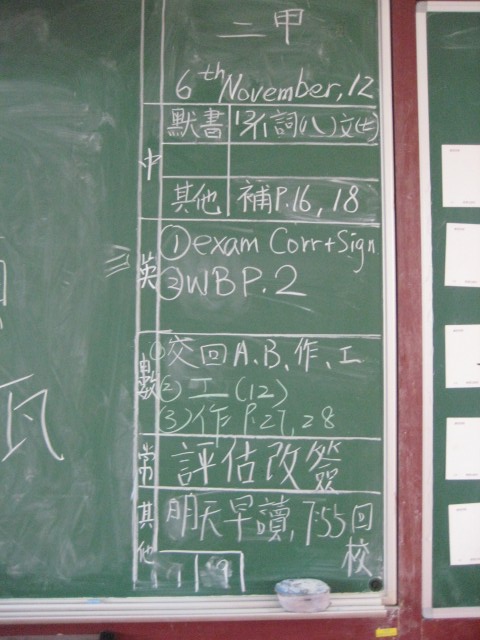 二甲
6th November, 12
中
默書 詞(八)文(七)
其他 補P.16, 18
英
①exam Corr+Sign
②WB P.2
數
①交回A.B、作、工
② 工(12)
(3)作 P.27, 28
常 評估改簽
其他 明天早讀, 7:55回校